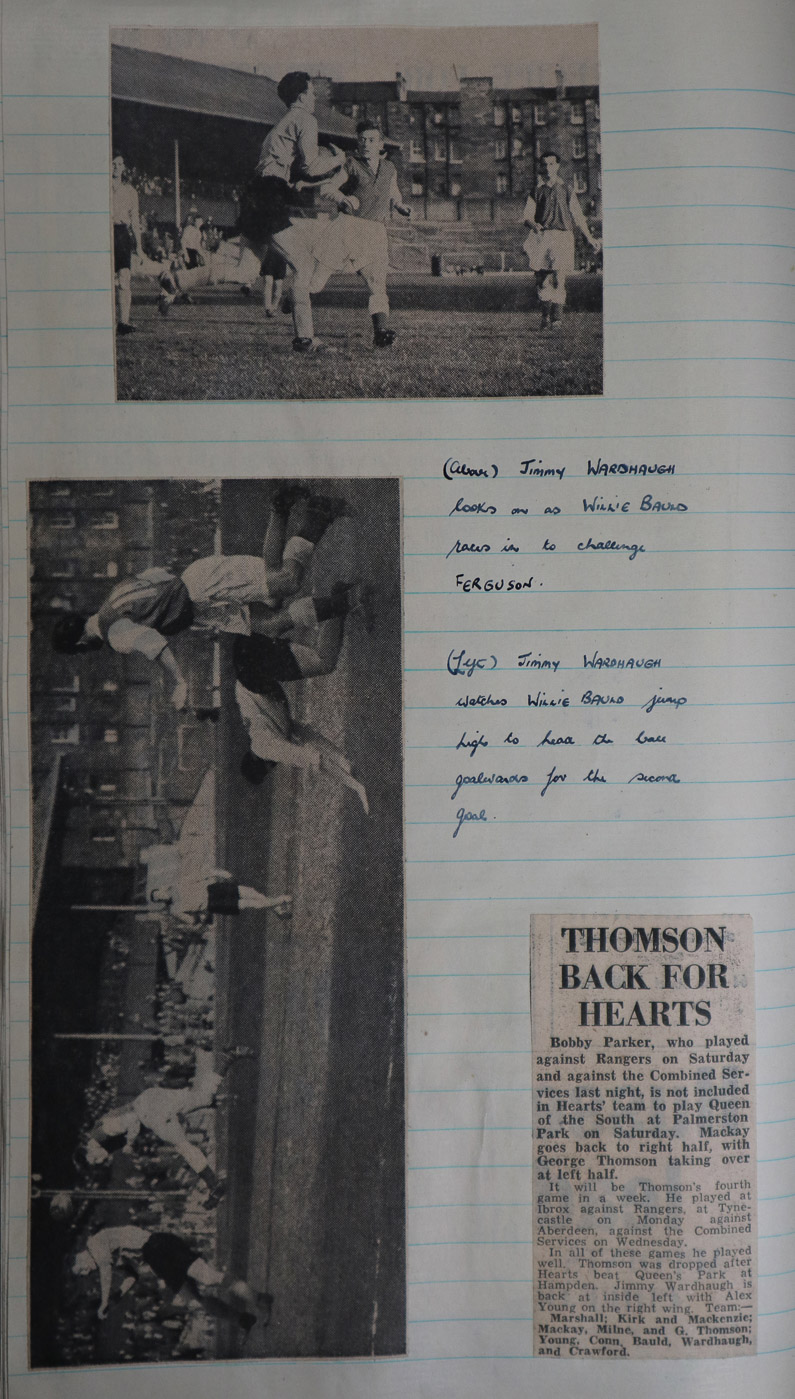 (Above) Jimmy WARDHAUGH
looks on as WILLIE BAULD
races in to challenge
FERGUSON.
Jimmy WARDHAUGH
watches WILLIE BAULD jump
high to head the ball
goalwards for the second
goal.
THOMSON
BACK FOR
HEARTS
Bobby Parker, who played
against Rangers on Saturday
and against the Combined Ser-
vices last night, is not included
in Hearts' team to play Queen
of the South at Palmerston
Park on Saturday. Mackay
goes back to right half, with
George Thomson taking over
at left half.
It will be Thomson's fourth
game in a week. He played at
Ibrox against Rangers, at Tyne-
castle on Monday against
Aberdeen, against the Combined
Services on Wednesday.
In all of these games he played
well. Thomson was dropped after
Hearts beat Queen's Park at
Hampden. Jimmy Wardhaugh is
back at inside left with Alex
Young on the right wing. Team:—
Marshall; Kirk and Mackenzie;
Mackay, Milne, and G. Thomson;
Young, Conn, Bauld, Wardhaugh,
and Crawford.